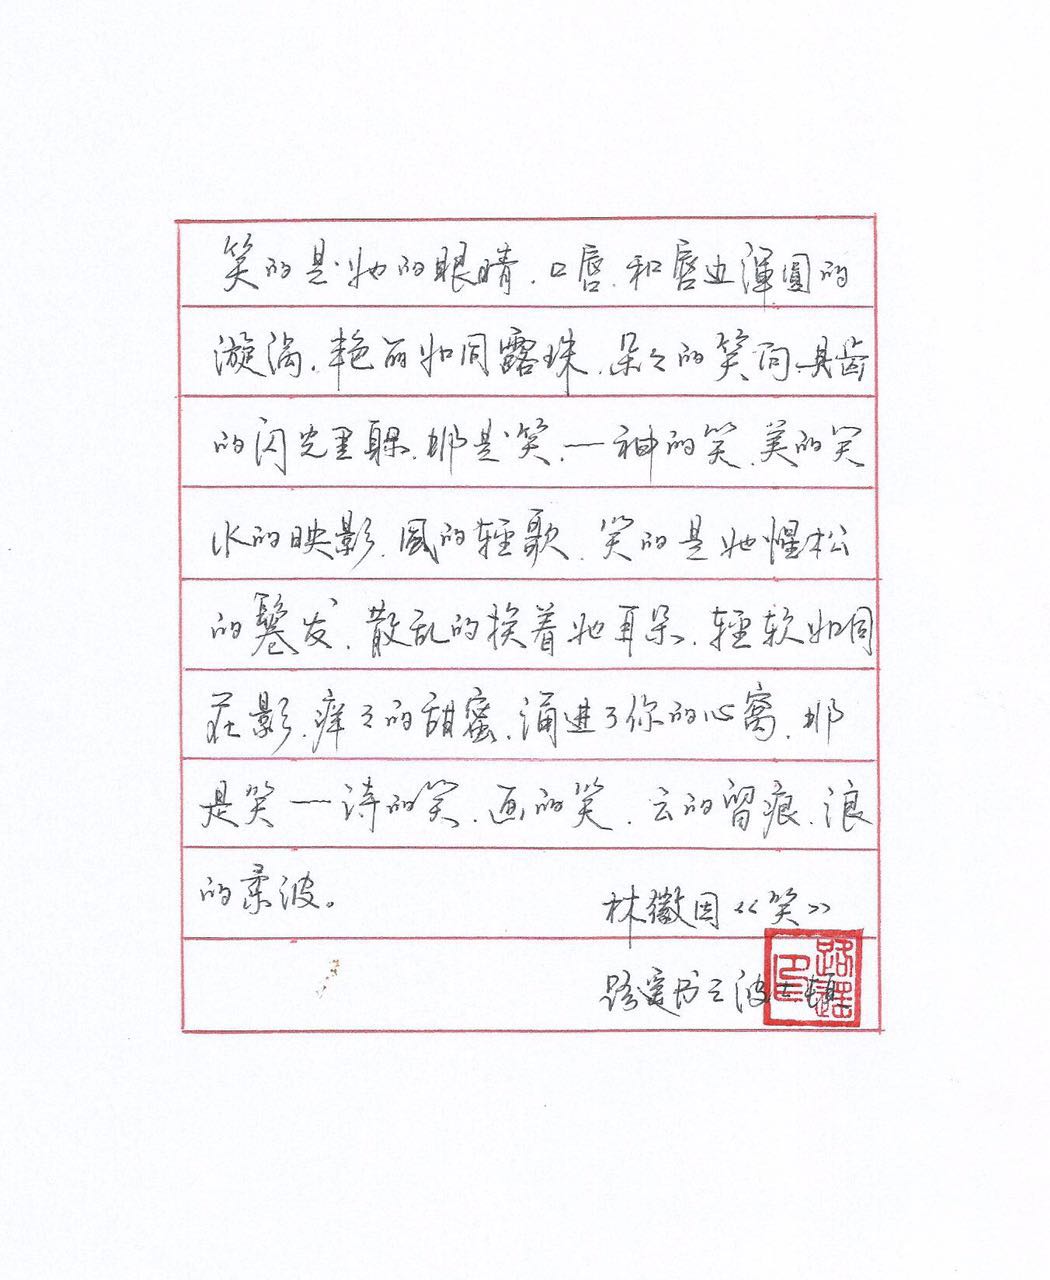 笑的是她的眼睛、口唇、和唇边渾圓的
漩涡，艳丽如同露珠，朵々的笑向贝齿
的闪光里躲，那是笑，一神的笑，美的笑
水的映影，風的輕歌，笑的是她惺松
的鬈发，散乱的挨着她耳朵，輕软如同
花影，痒々的甜蜜，涌进了你的心窝，那
是笑一诗的笑，画的笑，云的留痕，浪
的柔波。
林徽因《笑》
书之波士頓